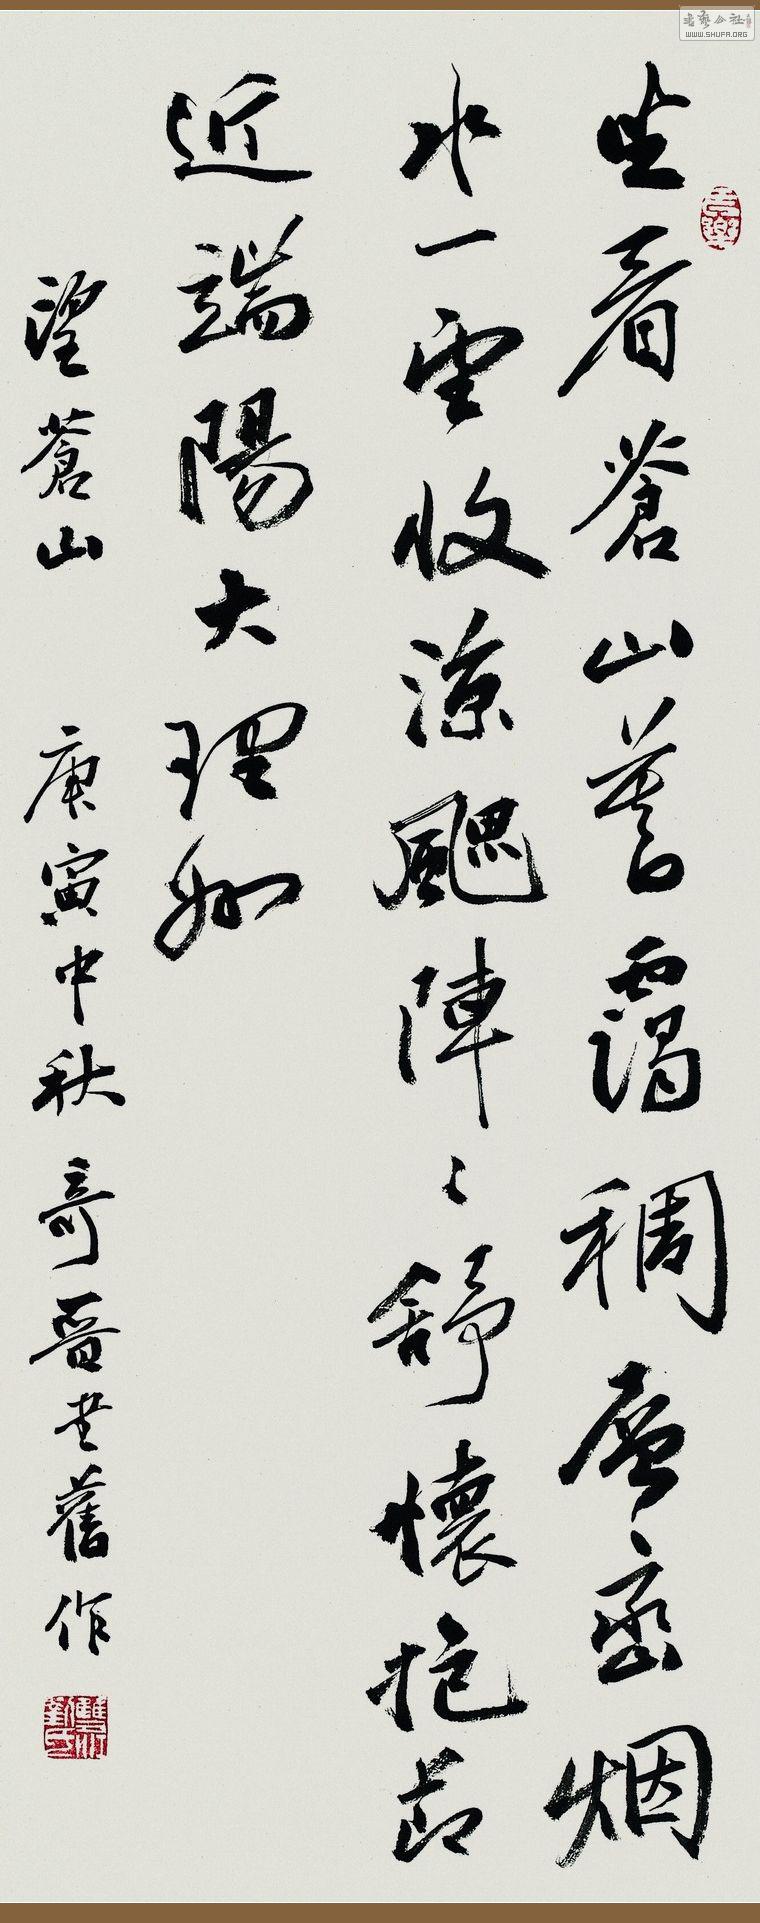 坐看蒼山暮靄稠層巒烟
水一望收涼颸陣〻舒懷抱節
近端陽大理州
望蒼山 庚寅中秋奇晉书舊作
WWW.SHUFA.ORG